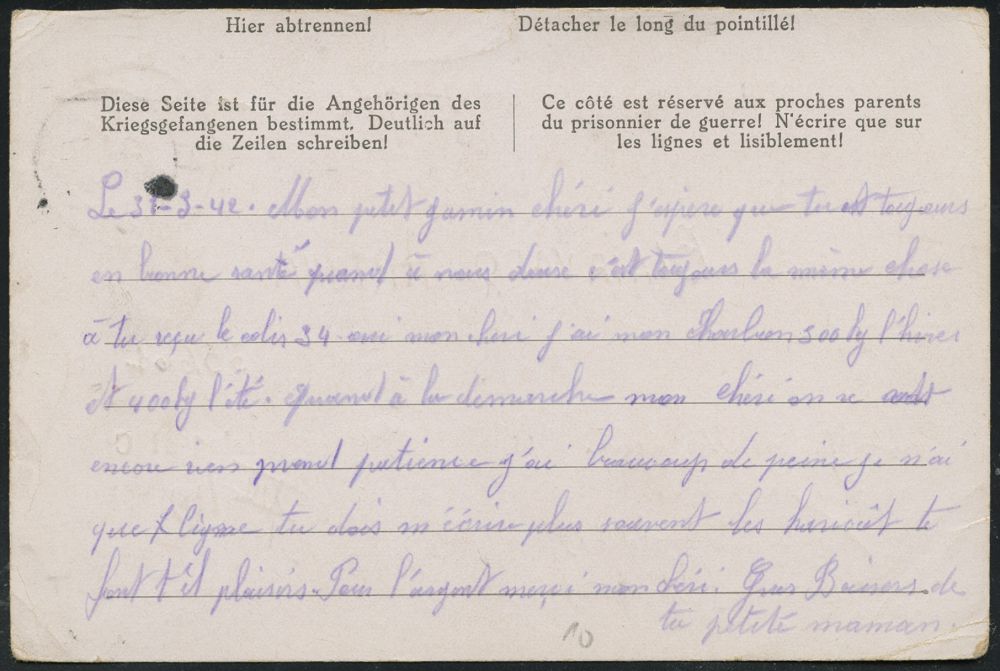 Hier abtrennen!
Détacher le long du pointillé!
Diese Seite ist für die Angehörigen des
Kriegsgefangenen bestimmt. Deutlich auf
die Zeilen schreiben!
Ce côté est réservé aux proches parents
du prisonnier de guerre! N'écrire que sur
les lignes et lisiblement!
Le 31-3-42. Mon petit gamin chéri j'espère que tu est toujours
en bonne santé quand à nous deux c'est toujours la même chose
à tu reçu le colis 34 oui mon cheri j'ai mon charbon 300 kg l'hiver
et 400 kg l'été. Quand à la demarche mon chéri on ne
encore rien prend patience j'ai beaucoup de peine je n'ai
que 7 ligne tu dois m'écrire plus souvent les haricôt te
font t'il plaisirs. Pour l'argent merçi mon chéri. Gros Baisers de
ta petite maman.
10